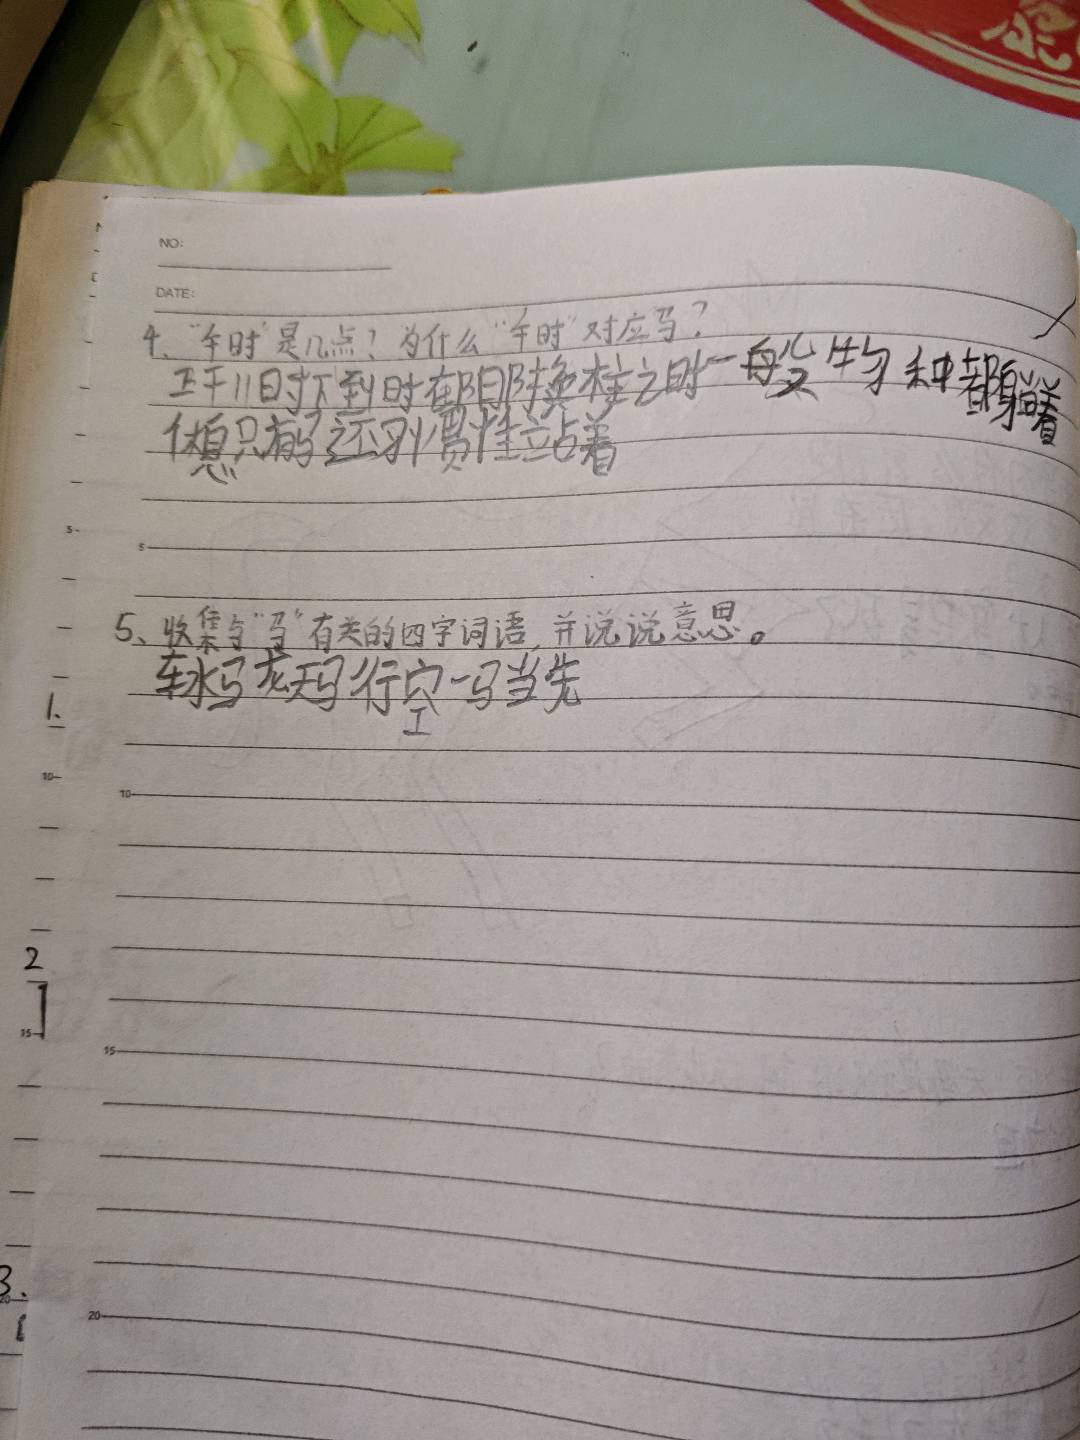 NO:
DATE:
4、"午时"是几点？为什么"午时"对应马？
正午11时到时在阴阳换柱之时一般生物种都躺着
休息只有马还习惯性站着
5、收集与"马"有关的四字词语,并说说意思。
车水马龙天马行空一马当先
5
10
15
20
1.
10
2
15
3.
20
5